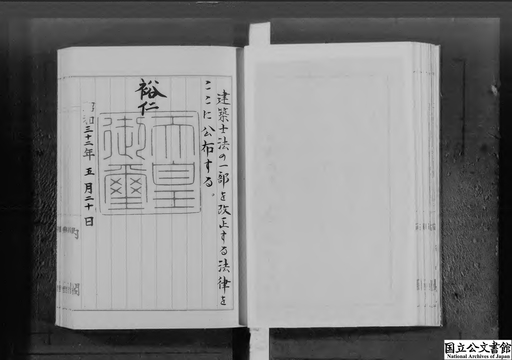 建築士法の一部を改正する法律を
ここに公布する。
裕仁
天皇
御璽
昭和三十二年五月二十日
内閣
国立公文書館
National Archives of Japan